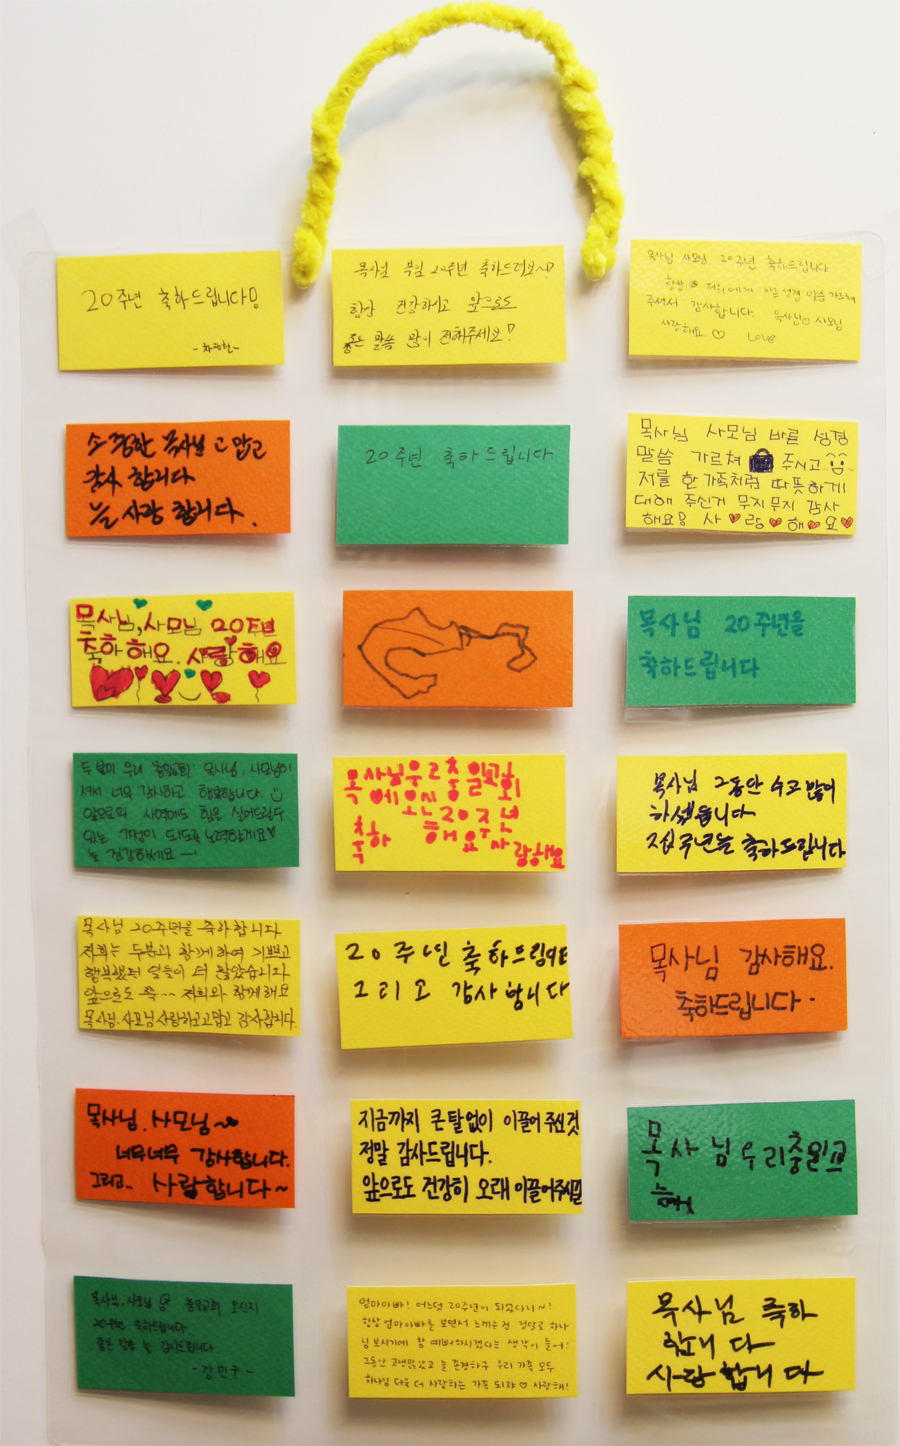 20주년 축하드립니다!
목사님 부임 20주년 축하드려요~
항상 건강하시고 앞으로도
좋은 말씀 많이 전해주세요!
목사님 사모님 20주년 축하드립니다
항상 저희에게 성경 말씀 가르쳐
주셔서 감사합니다. 목사님 사모님
사랑해요 ♡ Love
소중한 목사님 고맙고
감사 합니다
늘 사랑 합니다.
20주년 축하드립니다
목사님 사모님 바른 성경
말씀 가르쳐 주시고
저를 한가족처럼 따뜻하게
대해 주신거 무지무지 감사
해요! 사♥랑♥해♥요♥
목사님, 사모님 20주년
축하해요. 사랑해요
목사님 20주년을
축하드립니다
두 분이 우리 충일교회 목사님, 사모님이
셔서 너무 감사하고 행복합니다.
앞으로의 사역에도 힘을 실어드릴수
있는 되도록 노력할게요
늘 건강하세요
목사님우리충일교회
에오신
20주년
축하 해요 사
랑해요
목사님 그동안 수고 많이
하셨습니다
20주년을 축하드립니다
목사님 20주년을 축하합니다
저희는 두분과 함께하여 기쁘고
행복했던 일들이 더 많았습니다
앞으로도 쭉~~ 저희와 함께해요
목사님.사모님 사랑하고 고맙고 감사합니다.
20주년 축하드립니다
그리고 감사합니다
목사님 감사해요.
축하드립니다.
목사님. 사모님~
너무너무 감사합니다.
그리고.. 사랑합니다~
지금까지 큰탈없이 이끌어 주신것
정말 감사드립니다.
앞으로도 건강히 오래 이끌어주시길
목사님 우리충일교
목사님, 사모님 충일교회 오신지
20주년 축하드립니다
좋은 말씀 늘 감사드립니다
-강민구-
엄마아빠! 어느덧 20주년이 되었다니~!
항상 엄마아빠를 보면서 느끼는건 정말로 하나
님 보시기에 참 예뻐하시겠다는 생각이 들어!
그동안 고생많았고 늘 존경하구 우리 가족 모두
하나님 더욱 더 사랑하는 가족 되쟈 ♡ 사랑해!
목사님 축하
합니다
사랑합니다